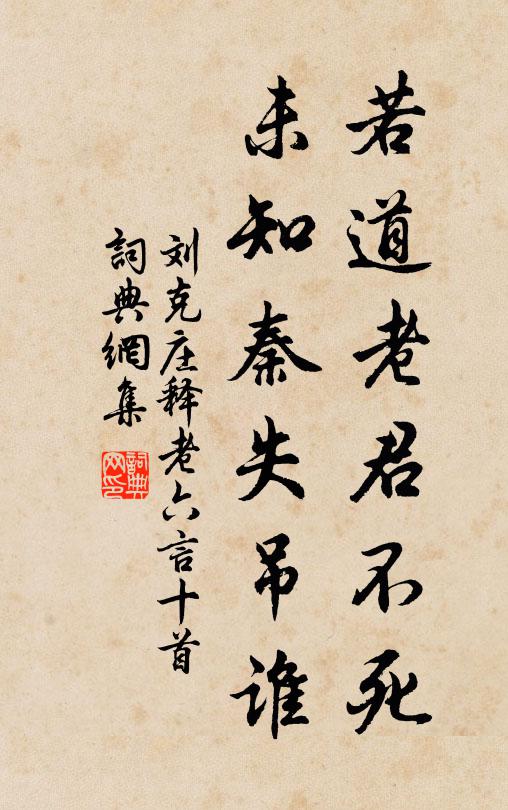 若道老君不死
未知秦失吊谁
刘克庄释老六言十首
詞典網集
詞典网印